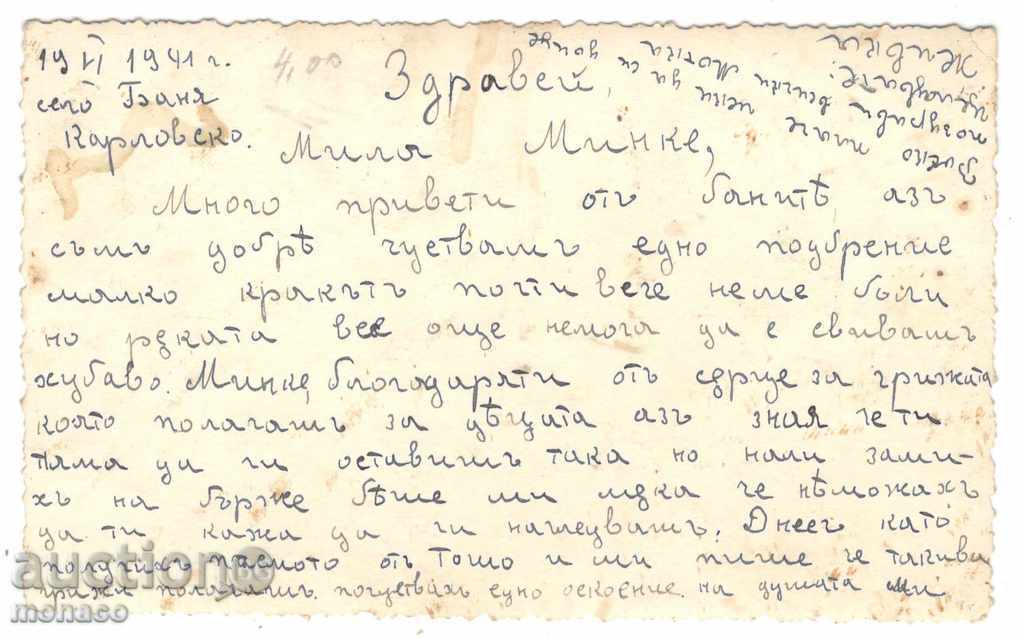 19 VI 1941 г.
село Баня
Карловско.
4,00
Здравей,
Мила Минке,
Много привети отъ банитѣ, азъ
съмъ добрѣ чуствамъ едно подбрение
малко кракътъ почти вече неме боли
но рѫката все още немога да е свивамъ
хубаво. Минке, благодаряти отъ сърце за грижата
която полагашъ за дѣцата азъ зная че ти
няма да ги оставишъ така но нали зами-
хъ на бърже бѣше ми мѫка че нѣможахъ
да ти кажа да ги нагледвашъ. Днесъ като
получихъ писмото отъ Тошо и ми пише че такива
грижи полагашъ почуствахъ едно оскоение на душата ми
поздрави всички
да си дойде
auction.bg
monaco